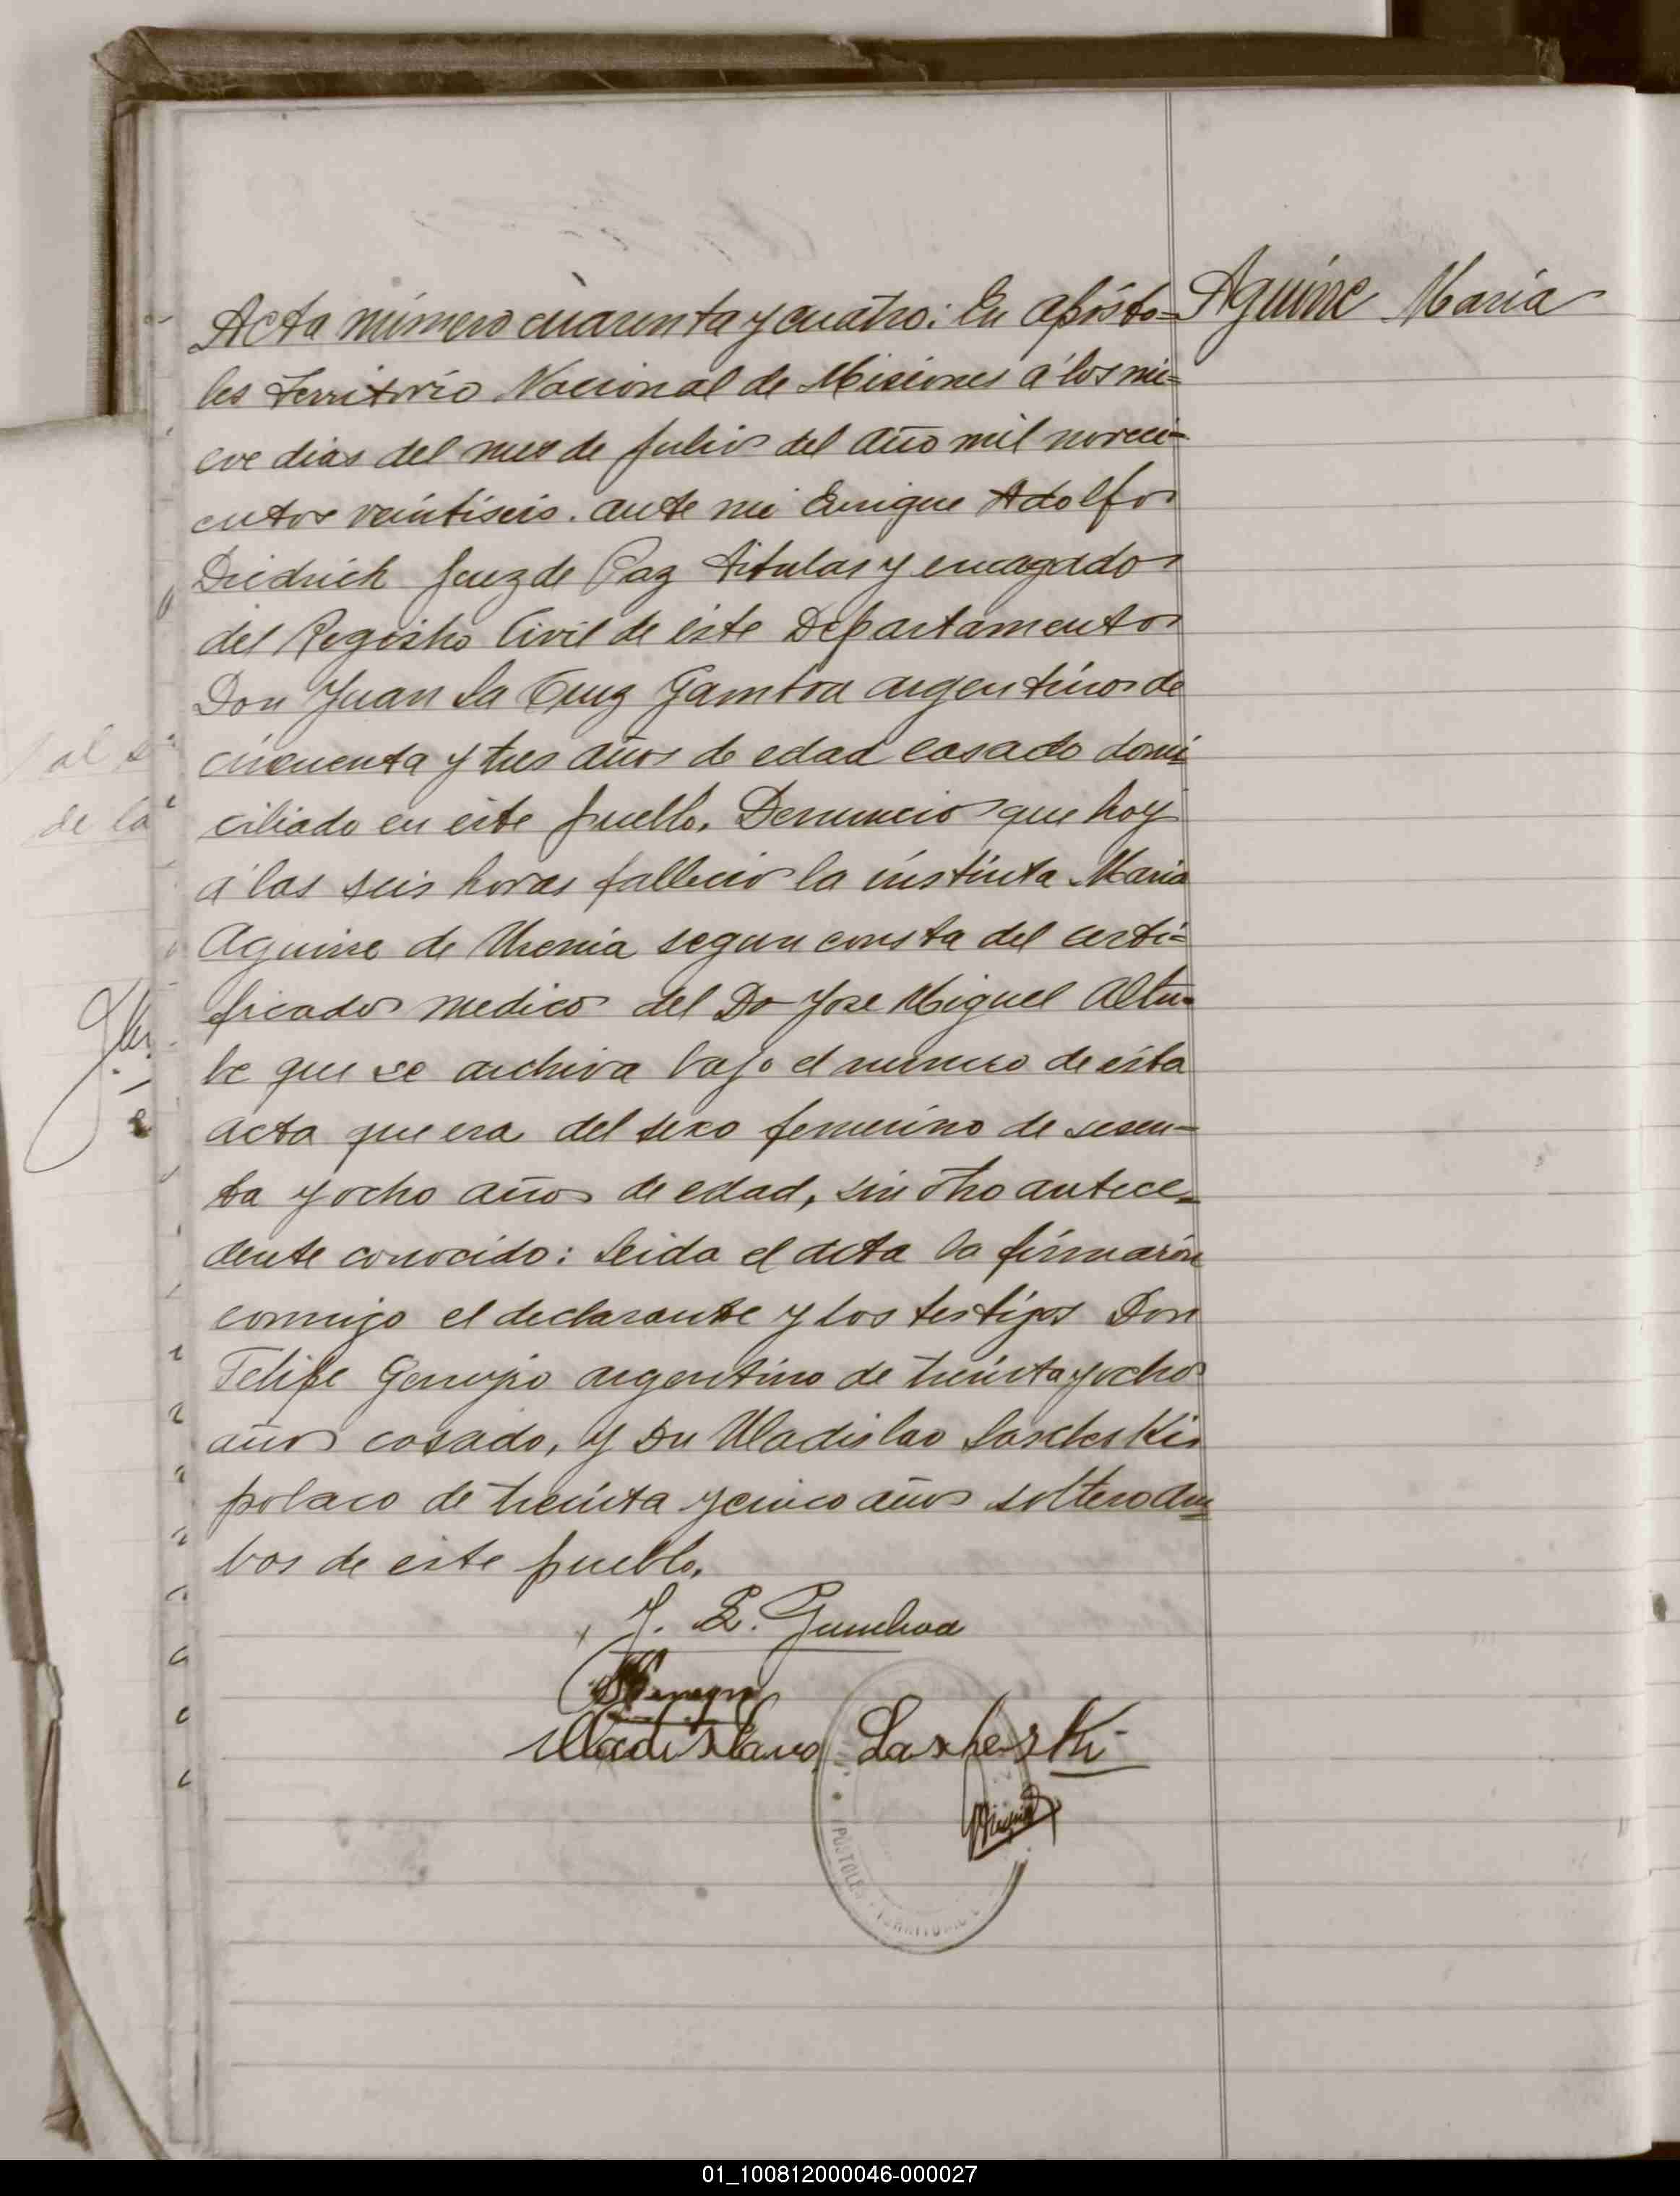 Acta número cuarenta y cuatro: En Apósto=
Aguirre Maria
les Territorio Nacional de Misiones á los nu=
eve dias del mes de Julio del año mil noveci=
entos veintiseis. ante mi Enrique Adolfo
Diedrich Juez de Paz Titular y encagado
del Registro Civil de éste Departamento
Don Juan la Cruz Gamboa argentino de
cincuenta y tres años de edad casado domi
ciliado en este pueblo. Denuncio que hoy
á las seis horas fallecio la instinta Maria
Aguirre de segun consta del certi=
ficado medico del Dr Jose Miguel Altu=
be que se archiva bajo el numero de ésta
acta que era del sexo femenino de sesen=
ta y ocho años de edad, sin otro antece=
dente conocido: Leida el acta la firmarón
conmigo el declarante y los testigos Don
Felipe argentino de treinta y ocho
años casado, y Dn Uladislao Lascheski
polaco de treinta y cinco años soltero am
bos de este pueblo.
Gamboa
Uladislavo Lascheski
01_100812000046-000027